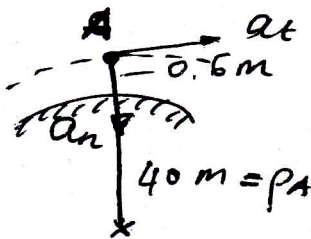 A
at
0.6 m
an
40 m = ρA